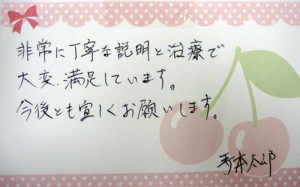 非常に丁寧な説明と治療で
大変満足しています。
今後とも宜しくお願いします。
太郎